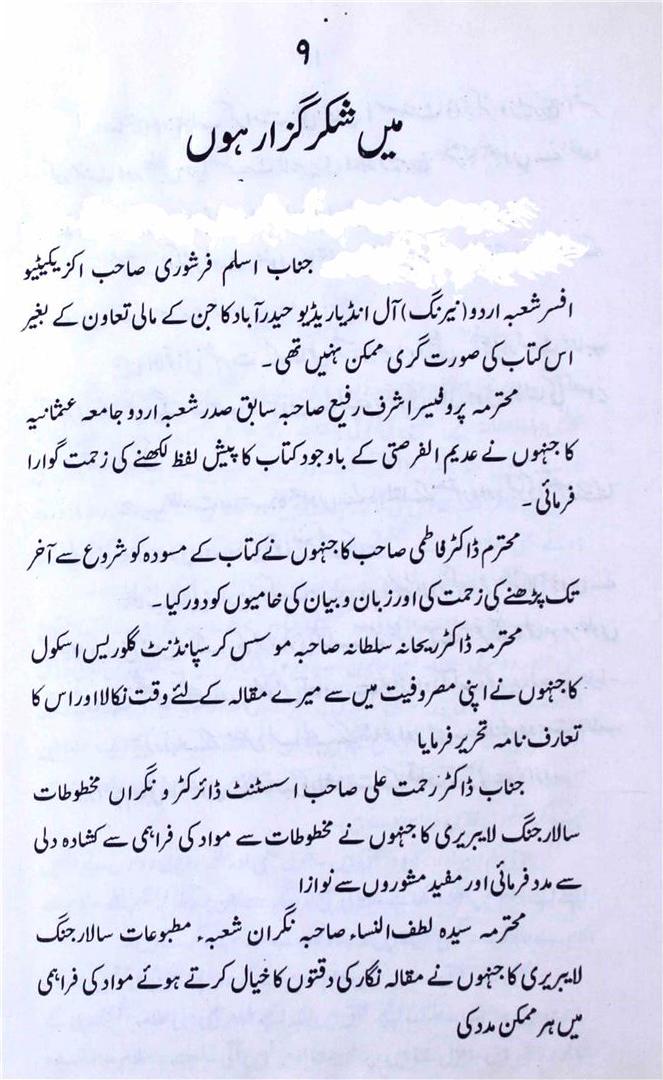 ۹
میں شکر گزار ہوں
جناب اسلم فرشوری صاحب اکزیکیٹیو
افسر شعبہ اردو (نیرنگ) آل انڈیا ریڈیو حیدرآباد کا جن کے مالی تعاون کے بغیر
اس کتاب کی صورت گری ممکن نہیں تھی۔
محترمہ پروفیسر اشرف رفیع صاحبہ سابق صدر شعبہ اردو جامعہ عثمانیہ
کا جنہوں نے عدیم الفرصتی کے باوجود کتاب کا پیش لفظ لکھنے کی زحمت گوارا
فرمائی۔
محترم ڈاکٹر فاطمی صاحب کا جنہوں نے کتاب کے مسودہ کو شروع سے آخر
تک پڑھنے کی زحمت کی اور زبان و بیان کی خامیوں کو دور کیا۔
محترمہ ڈاکٹر ریحانہ سلطانہ صاحبہ موسس کرسپانڈنٹ گلوریس اسکول
کا جنہوں نے اپنی مصروفیت میں سے میرے مقالہ کے لئے وقت نکالا اور اس کا
تعارف نامہ تحریر فرمایا
جناب ڈاکٹر رحمت علی صاحب اسسٹنٹ ڈائرکٹر و نگراں مخطوطات
سالار جنگ لایبریری کا جنہوں نے مخطوطات سے مواد کی فراہمی سے کشادہ دلی
سے مدد فرمائی اور مفید مشوروں سے نوازا
محترمہ سیدہ لطف النساء صاحبہ نگران شعبہء مطبوعات سالار جنگ
لایبریری کا جنہوں نے مقالہ نگار کی دقتوں کا خیال کرتے ہوئے مواد کی فراہمی
میں ہر ممکن مدد کی